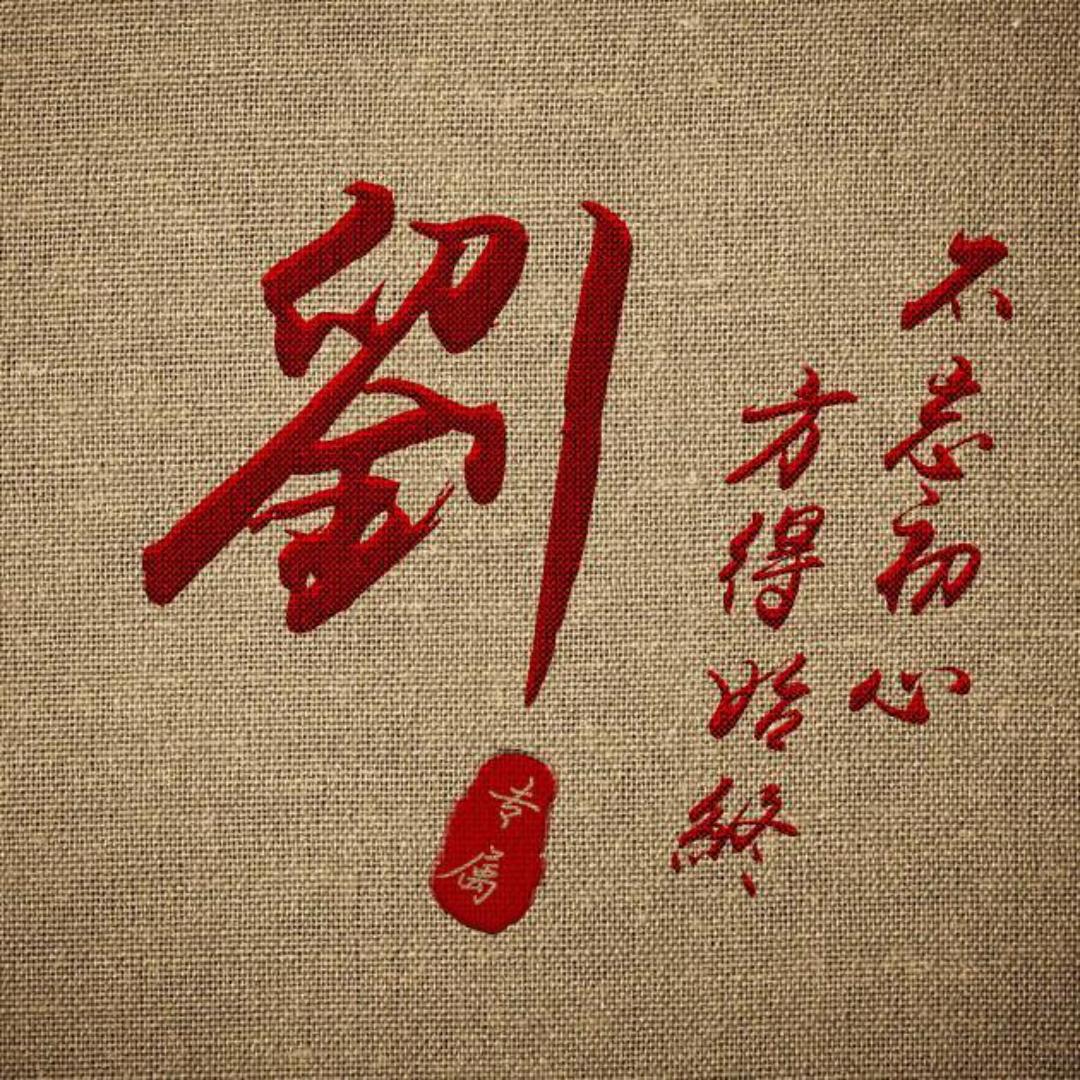 不忘初心
方得始終
劉
专属